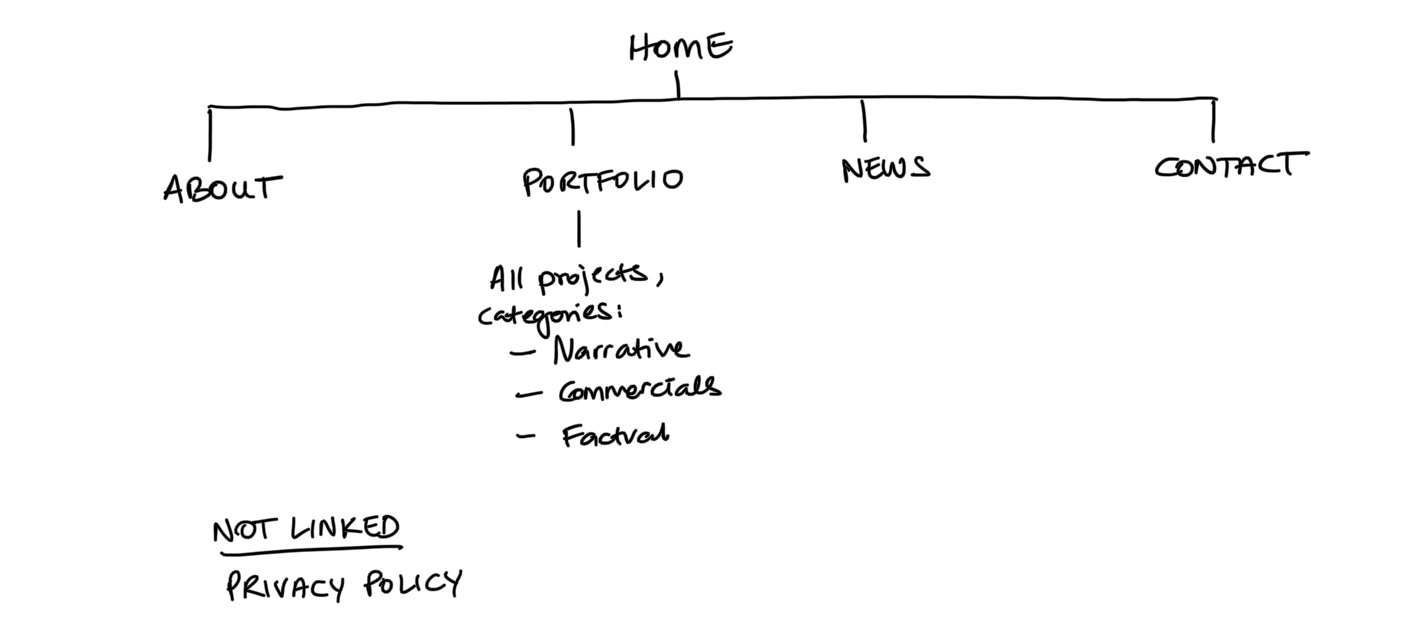 HOME
ABOUT
PORTFOLIO
NEWS
CONTACT
All projects,
categories:
- Narrative
- Commercials
- Factual
NOT LINKED
PRIVACY POLICY